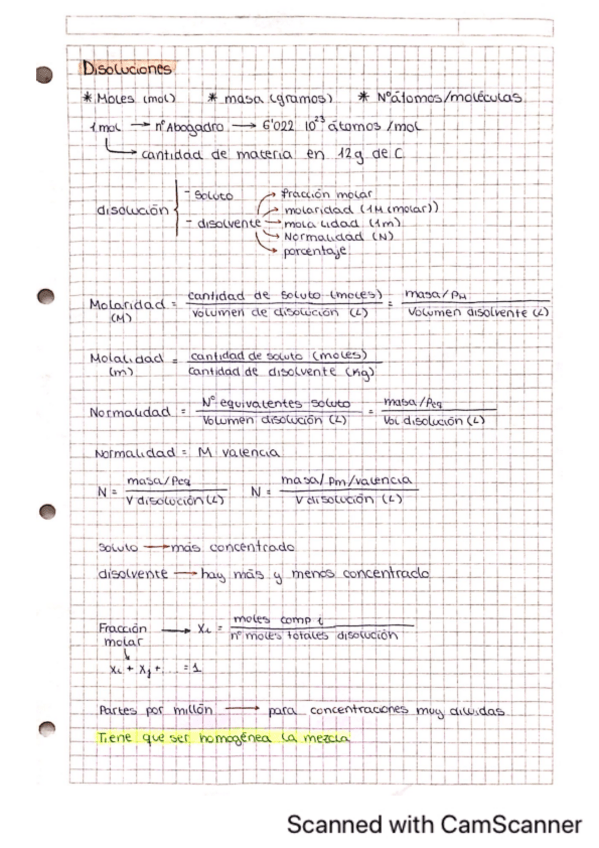 Disoluciones
* Moles (mol) * masa (gramos) * Nº átomos/moléculas
1 mol → nº Abogadro → 6'022 10²³ átomos /mol
cantidad de materia en 12g de C
disolución
- Soluto
- disolvente
fracción molar
molaridad (1M (molar))
molalidad (1m)
Normalidad (N)
porcentaje
Molaridad (M) = cantidad de soluto (moles) / volumen de disolución (L) = masa/PM / Volumen disolvente (L)
Molalidad (m) = cantidad de soluto (moles) / cantidad de disolvente (Kg)
Normalidad = Nº equivalentes soluto / Volumen disolución (L) = masa/Peq / Vol disolución (L)
Normalidad = M valencia
N = masa/Peq / V disolución (L) N = masa/pm/valencia / V disolución (L)
Soluto → más concentrado
disolvente → hay más y menos concentrado
Fracción molar → Xi = moles comp i / nº moles totales disolución
Xi + Xj + ... = 1
Partes por millón → para concentraciones muy diluidas
Tiene que ser homogénea la mezcla
Scanned with CamScanner